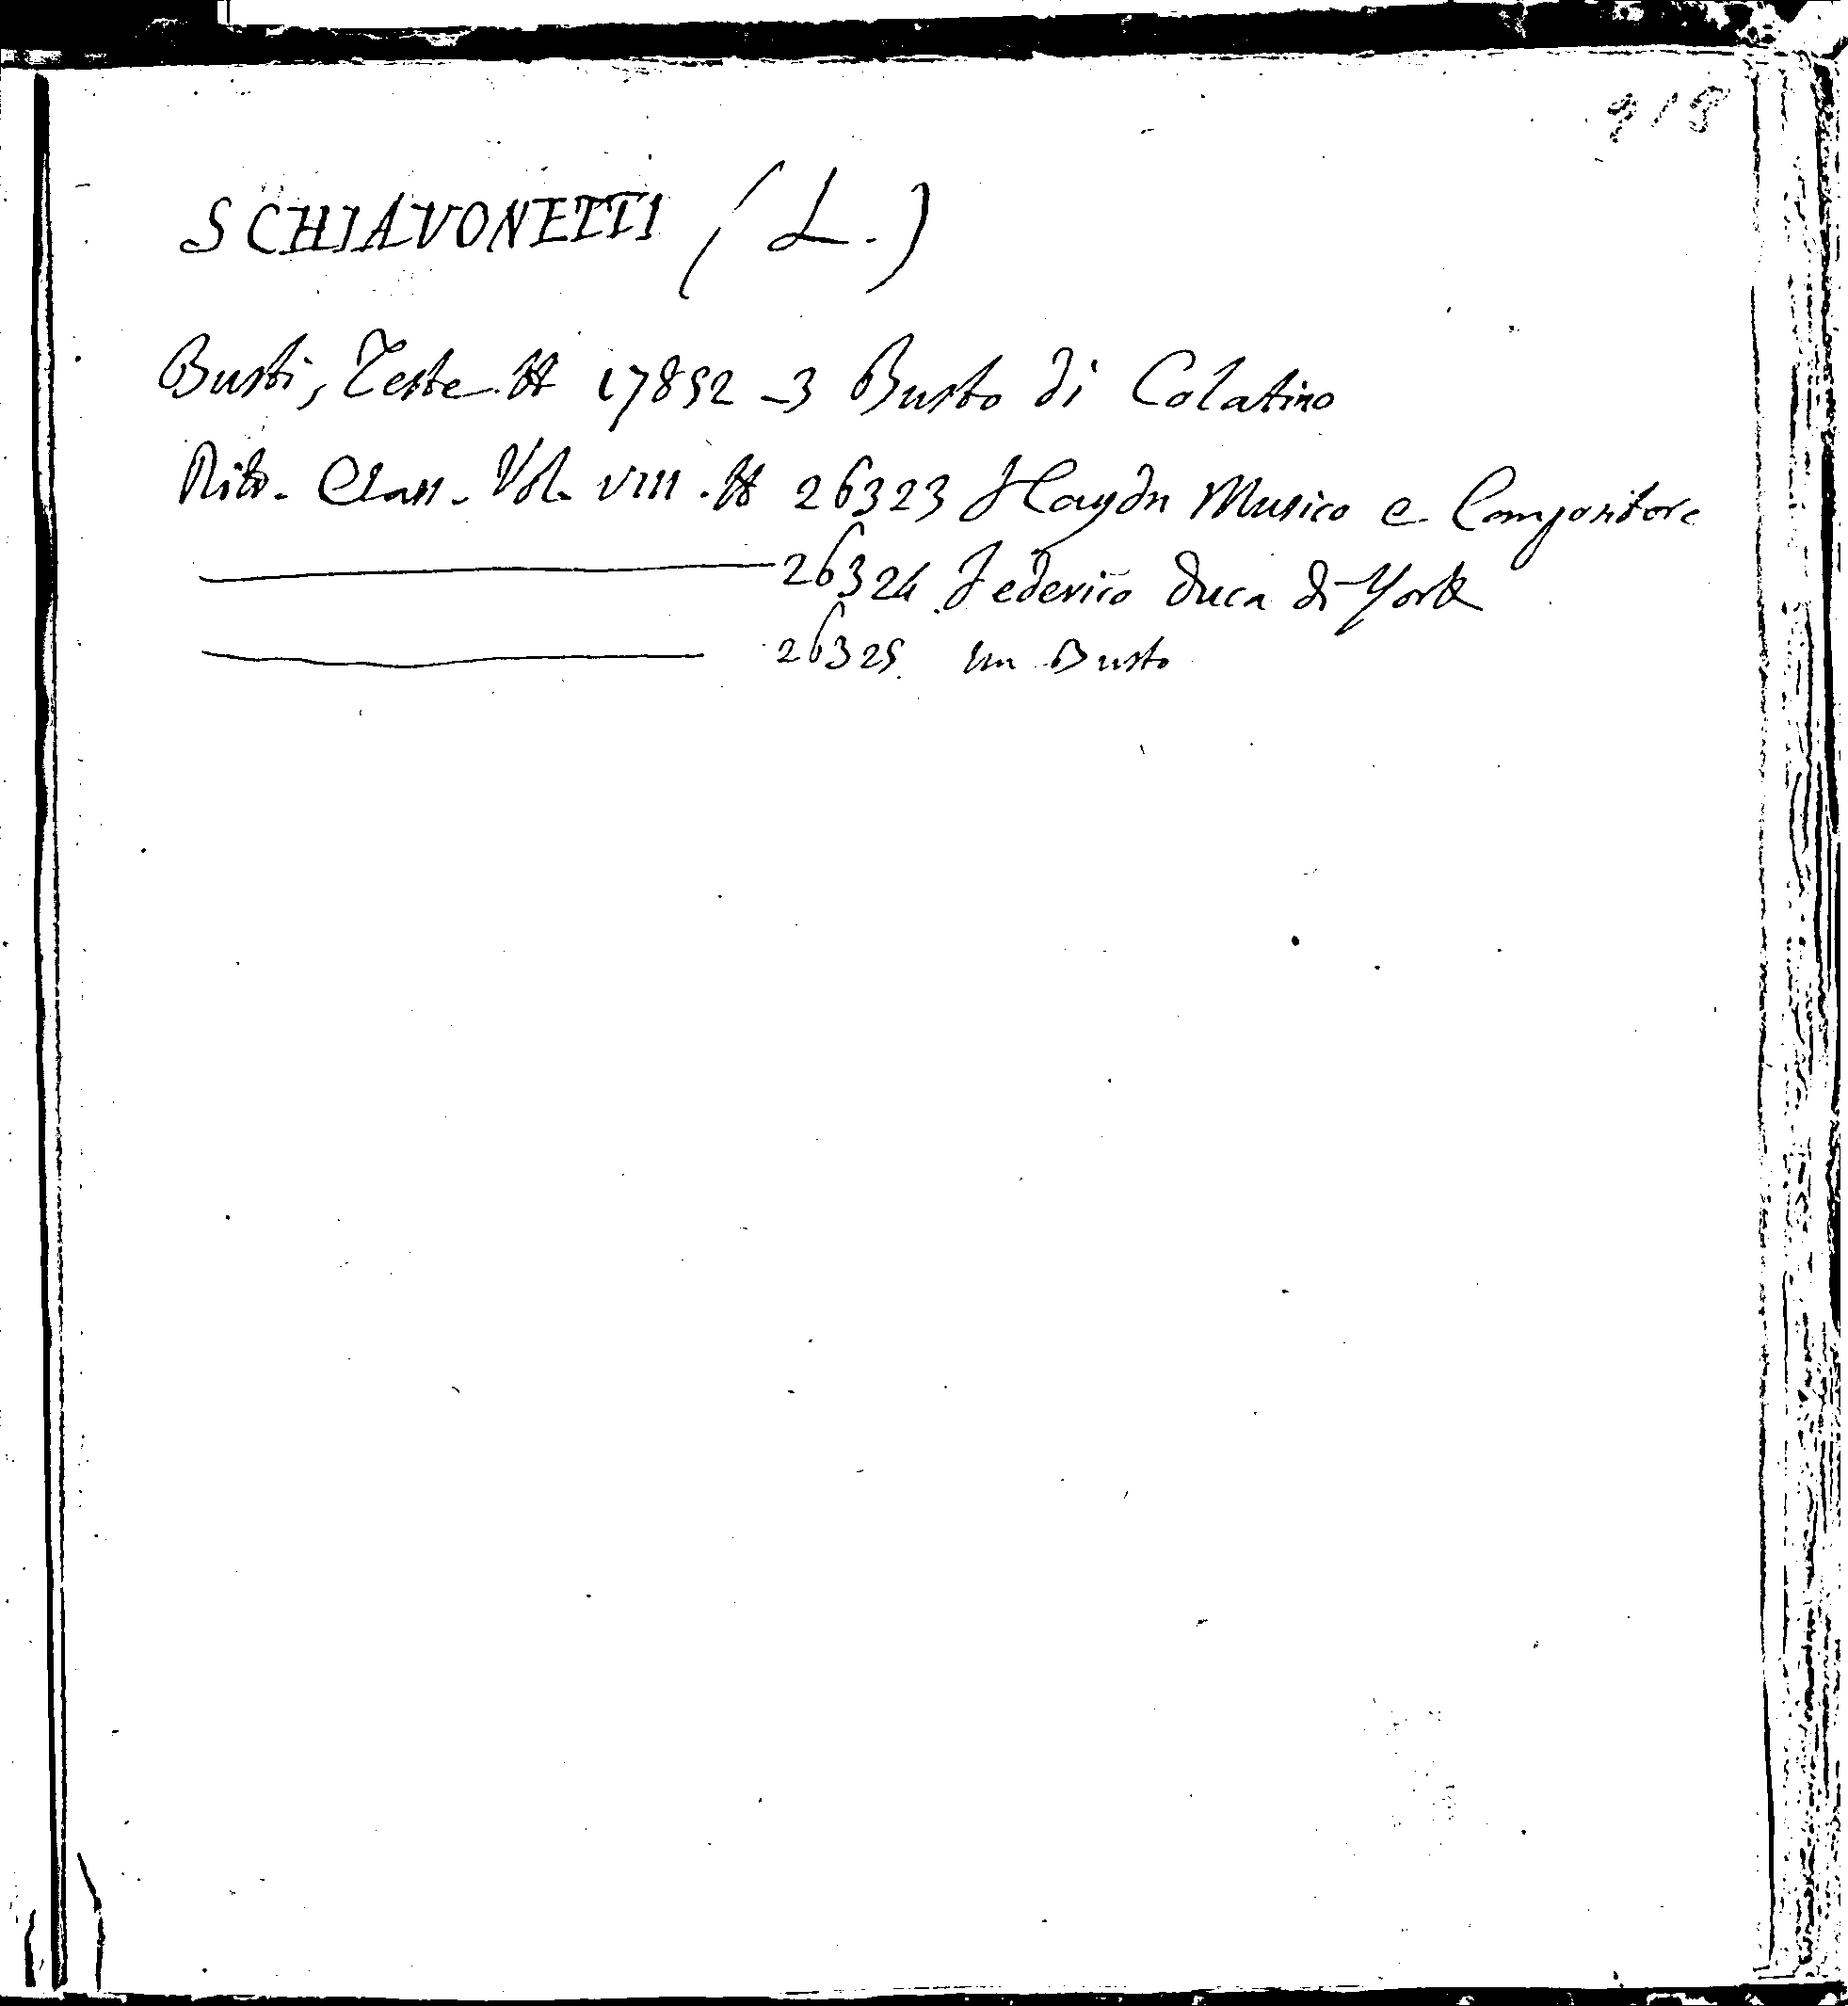 918
SCHIAVONETTI (L.)
Busti, Teste H 17852-3 Busto di Colatino
Ritr. Class. Vol. VIII. H 26323 Haydn Musico e Compositore
26324 Federico Duca di York
26325 un Busto